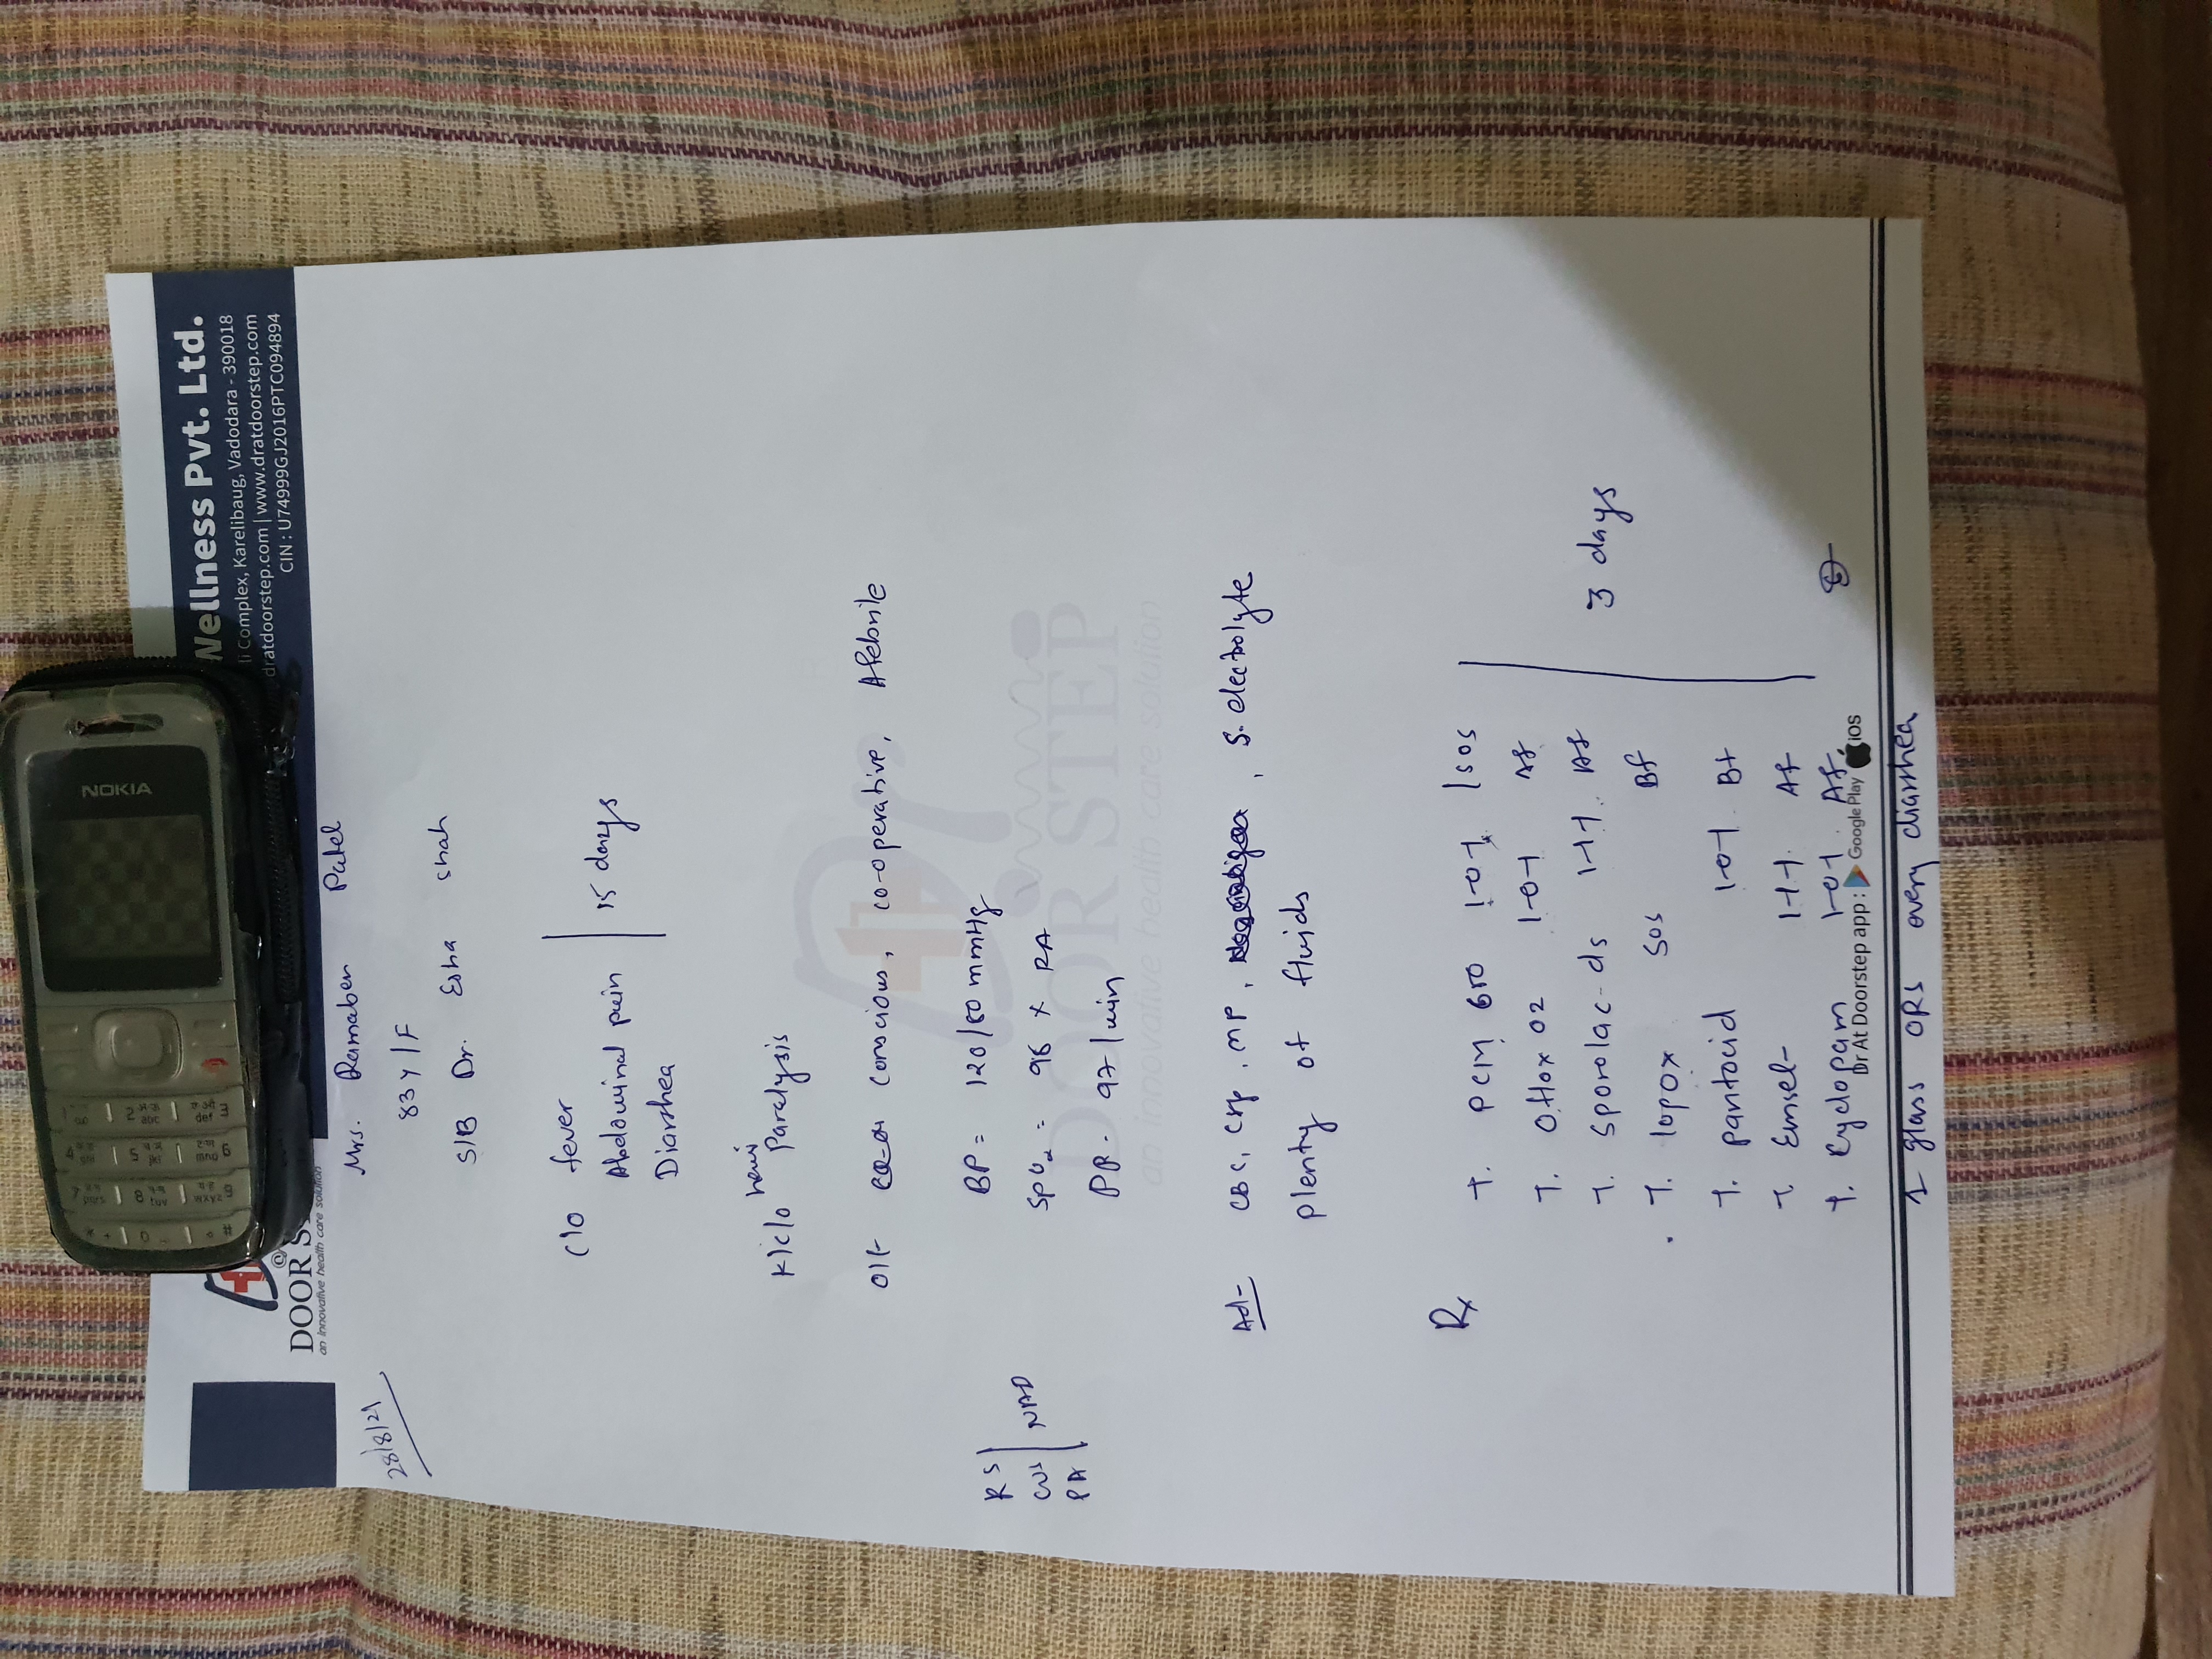 NOKIA
Wellness Pvt. Ltd.
li Complex, Karelibaug, Vadodara - 390018
dratdoorstep.com | www.dratdoorstep.com
CIN : U74999GJ2016PTC094894
DOOR S
an innovative health care solution
28/8/21
Mrs. Ramaben Patel
83 y/F
S/B Dr. Esha Shah
C/o fever
Abdominal pain
Diarrhea
15 days
K/c/o hemi Paralysis
O/E conscious, co-operative, Afebrile
RS
CVS
PA
NAD
BP = 120/80 mmHg
SpO2 = 96 % RA
PR - 97/min
Dr
DOOR STEP
an innovative health care solution
Ad- CBC, Crp, MP, , S. electrolyte
plenty of fluids
Rx
T. PCM 650 1-0-1 /SOS
T. Oflox O2 1-0-1 Af
T. Sporolac-ds 1-1-1 Af
T. lopox SOS Bf
T. pantocid 1-0-1 Bf
T. Emset 1-1-1 Af
T. Cyclopam 1-0-1 Af
3 days
Dr At Doorstep app : Google Play iOS
1 glass ORS every diarrhea